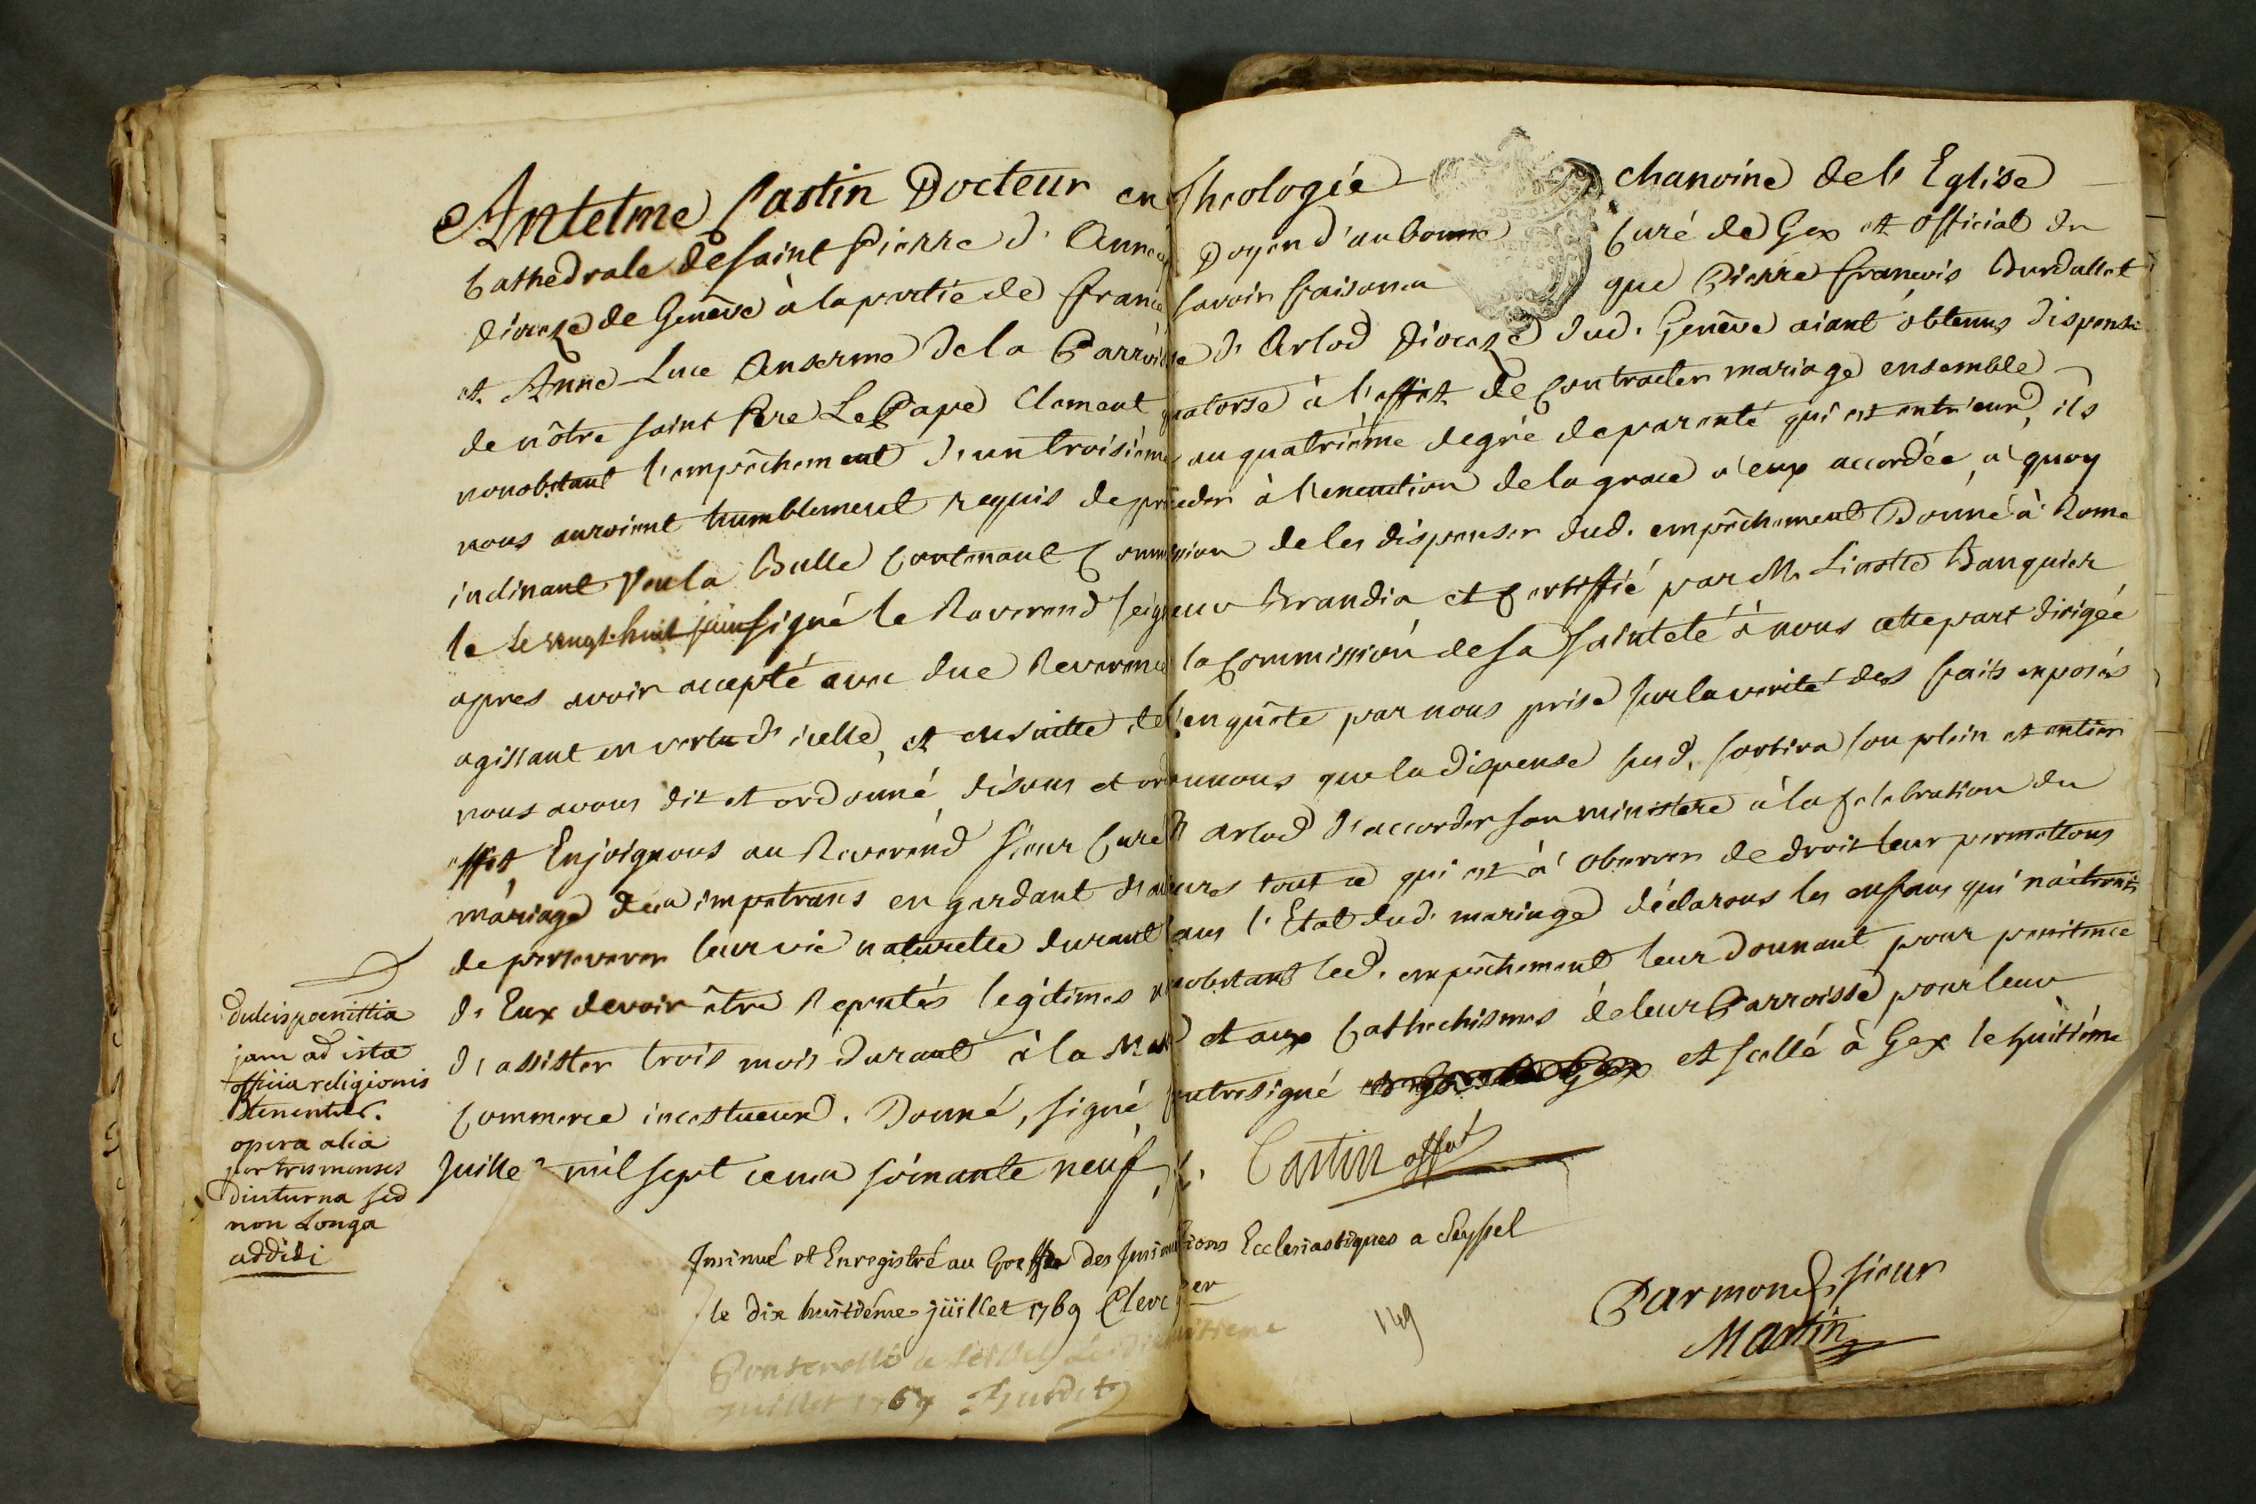 Antelme Castin Docteur en Theologie chanoine de l'Eglise
Cathedrale de saint Pierre d'Anneci Doyen d'aubonne Curé de Gex et official du
dioceze de Genêve à la partie de france savoir faisons que Pierre francois Burdallet
et Anne Luce Anserme de la Parroisse d'Arlod Dioceze dud. Genêve aiant obtenus dispense
de nôtre saint Pere Le Pape Clement quatorse à l'effet de Contracter mariage ensemble
nonobstant l'empêchement d'un troisiéme au quatriéme degré de parenté qui est entr'eux, ils
nous auroient humblement requis de proceder à l'execution de la grace à eux accordée, à quoy
inclinant Veu la Bulle Contenant Commission de les dispenser dud. empêchement Donné à Rome
le le vingt huit juin signé le Reverend seigneur Brandia et Certiffié par M. Liotté Banquier
apres avoir accepté avec due Reverence la Commission de sa sainteté à nous cette part dirigée
agissant en vertu d'icelle, et ensuitte de l'enquête par nous prise sur la verité des faits exposés
nous avons dit et ordonné, disons et ordonnons que la dispense susd. sortira son plein et entier
effet, Enjoignons au Reverend sieur Curé d'arlod d'accorder son ministere à la Celebration du
mariage des impetrans en gardant d'ailleurs tout ce qui est à observer de droit leur permettons
de perseverer leur vie naturelle durant dans l'Etat dud. mariage déclarons les enfans qui naitront
d'Eux devoir être Reputés legitimes nonobstant led. empêchement leur donnant pour penitence
d'assister trois mois durant à la Messe et aux Cathechismes de leur Parroisse pour leur
Commerce incestueux. Donné, signé, contresigné et scellé à Gex le huitiéme
Juillet mil sept cens soixante neuf,
Castin offal
dulcis poenittia
jam ad ista
officia religionis
tenentur.
opera alia
per tres menses
diuturna sed
non Longa
addidi
Insinué et Enregistré au Greffe des Insinuations Ecclesiastiques a Seyssel
le dix huitiéme juillet 1769
juillet 1769
149
Par mond. sieur
Martin